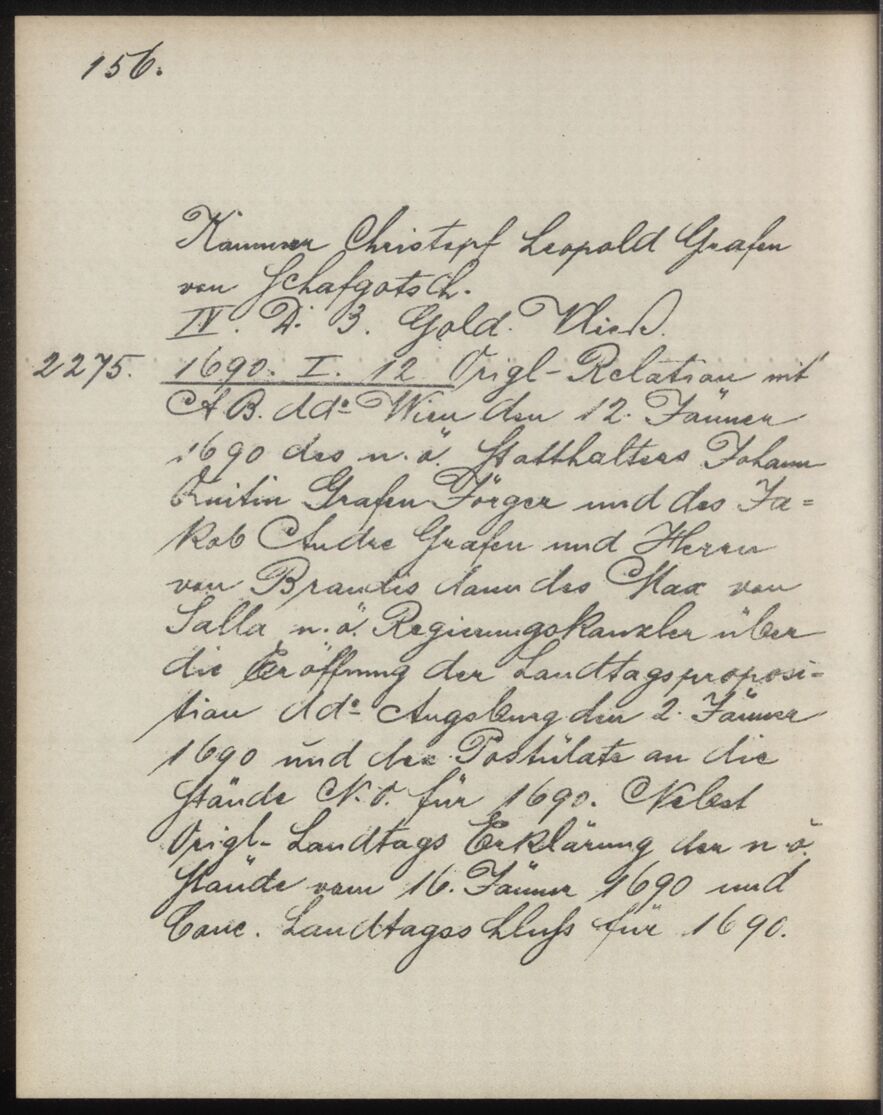 156.
Kämmerer Christopf Leopold Grafen
von Schafgotsch.
IV. D. 3. Gold. Vlies.
2275. 1690. I. 12 Origl-Relation mit
A B. ddo Wien den 12. Jänner
1690 des n. ö. Statthalters Johann
Quitin Grafen Jörger und des Ja=
kob Andre Grafen und Herrn
von Brandis dann des Max von
Salla n. ö. Regierungskanzler über
die Eröffnung der Landtagsproposi=
tion ddo Augsburg den 2. Jänner
1690 und der Postulate an die
Stände N. Ö. für 1690. Nebst
Origl- Landtags Erklärung der n ö.
Stände vom 16. Jänner 1690 und
Conc. Landtagsschluß für 1690.